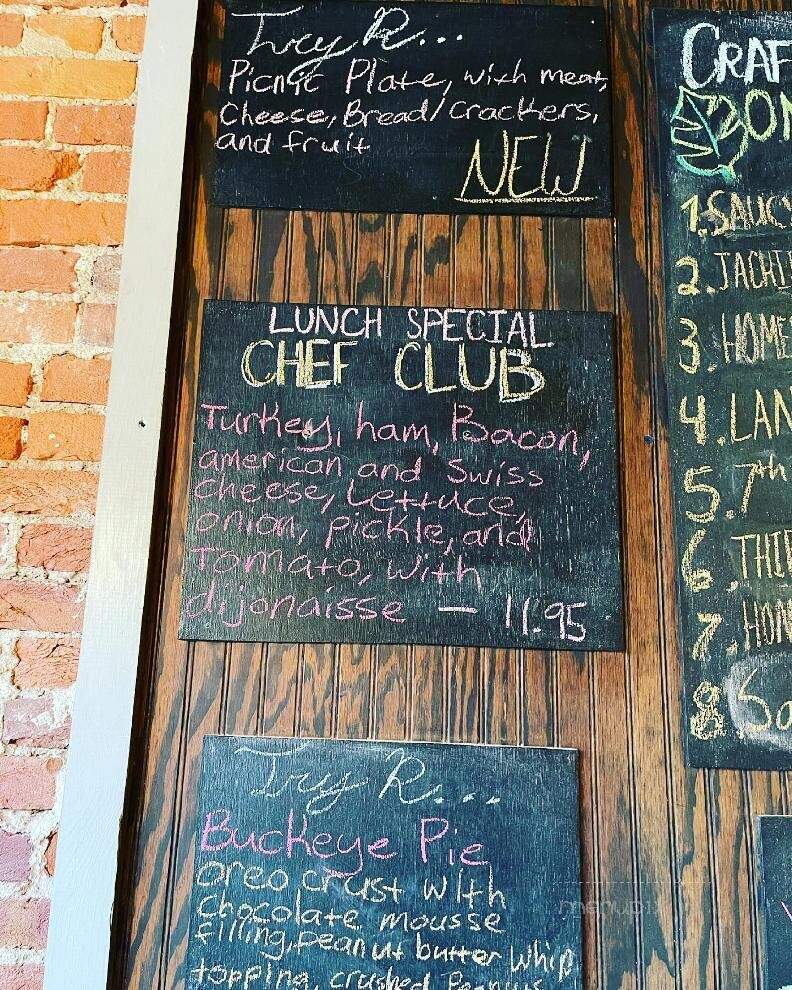 Try R...
Picnic Plate, with meat,
Cheese, Bread/crackers,
and fruit
NEW
LUNCH SPECIAL
CHEF CLUB
Turkey, ham, Bacon,
american and Swiss
cheese, Lettuce,
onion, pickle, and
Tomato, with
dijonaisse — 11.95
Try R...
Buckeye Pie
oreo crust with
chocolate mousse
filling, peanut butter whip
topping, crushed Peanuts
CRAF
ON
1. SAUCY
2. JACKI
3. HOME
4. LAN
5. 7th
6. THI
7. HON
8. So